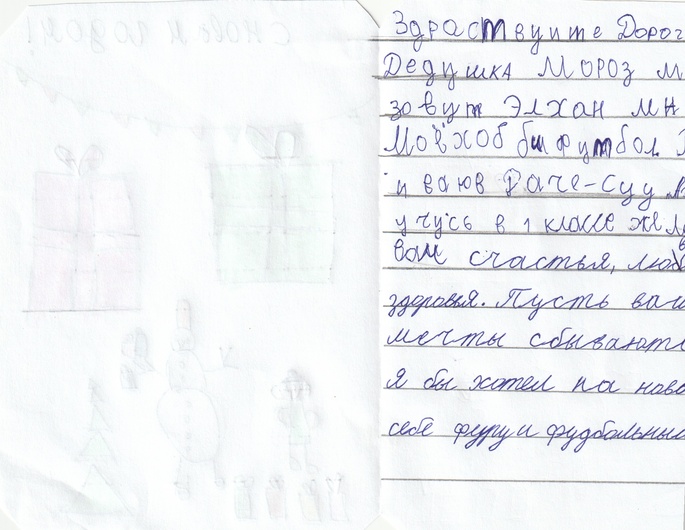 С НОВЫМ ГОДОМ!
Здраствуите Дорог
Дедушка Мороз м
зовут Элхан мн
Моё хоб би футбол.
учусь в 1 классе жел
вам счастья, любв
здоровья. Пусть ваш
мечты сбываютс
Я бы хотел на ново
себе фуру и фудбольный